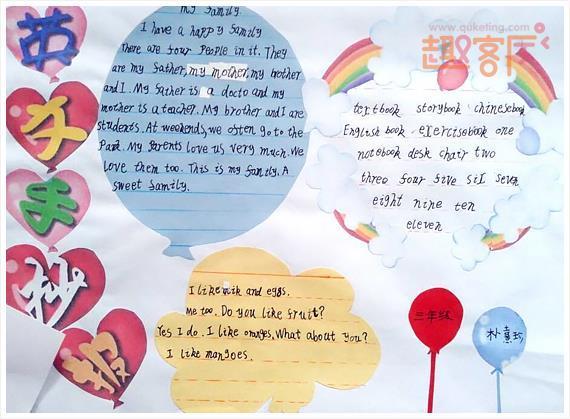 www.quketing.com
趣客厅
英
文
手
抄
报
My family.
I have a happy family
there are four people in it. They
are my father, my mother, my brother
and I. My father is a docto and my
mother is a teacher. My brother and I are
students. At weekends, we often go to the
Park. My parents love us very much. We
love them too. This is my family. A
sweet family.
textbook storybook chinesebook
English book exercisebook one
notebook desk chair two
three four five siI seven
eight nine ten
eleven
I like milk and eggs.
me too. Do you like fruit?
Yes I do. I like oranges. What about you?
I like mangoes.
三年级
朴慧玲